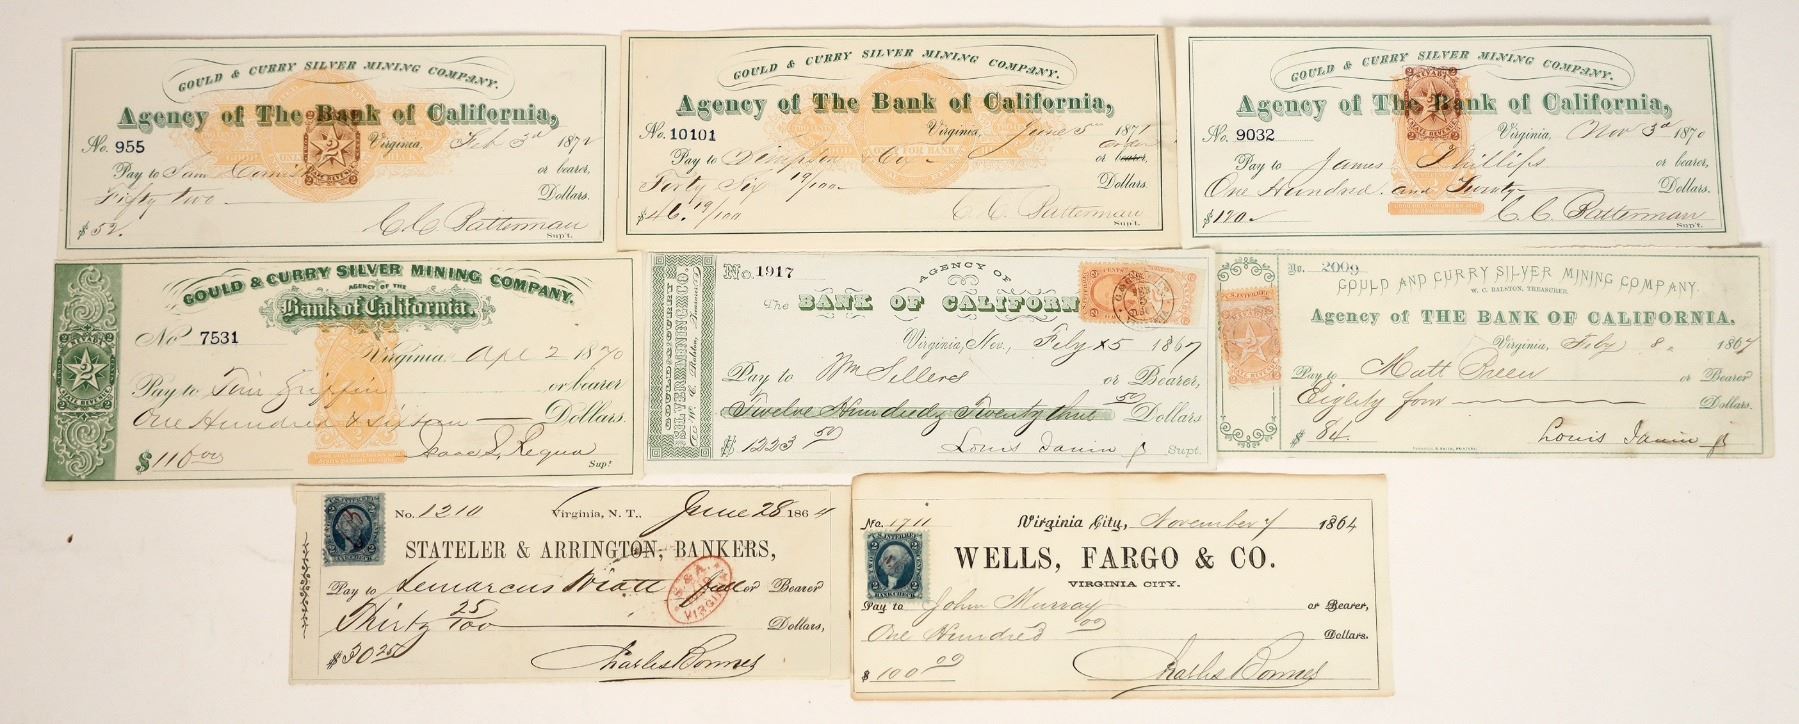 GOULD & CURRY SILVER MINING COMPANY.
Agency of The Bank of California,
No. 955 Virginia, Feb 3d 1872
Pay to Sam or bearer,
Fifty two Dollars.
$52. C. C. Batterman
Sup't.
GOULD & CURRY SILVER MINING COMPANY.
Agency of The Bank of California,
No. 10101 Virginia, June 5 1871
Pay to Simpson & Co or bearer,
order
Forty Six 19/100 Dollars.
$46.19/100 C. C. Batterman
Sup't.
GOULD & CURRY SILVER MINING COMPANY.
NEVADA
Agency of The Bank of California,
No. 9032 Virginia, Nov 3d 1870
2
STATE REVENUE
Pay to James Phillips or bearer,
One Hundred and Twenty Dollars.
$120 C. C. Batterman
Sup't.
GOULD & CURRY SILVER MINING COMPANY.
AGENCY OF THE
Bank of California.
No 7531 Virginia, Apl 2 1870
NEVADA
2
STATE REVENUE
Pay to Tim Griffin or bearer
One Hundred & sixteen Dollars.
$116 00 Isaac L. Requa
Supt
GOULD & CURRY
SILVER MINING CO.
W. C. Ralston, Treasurer
No. 1917
AGENCY OF
The BANK OF CALIFORN
Virginia, Nev., Feby 25 1867
Pay to Wm Sellers or Bearer,
Twelve Hundred Twenty three 50 Dollars
$1223 50 Louis Janin Jr Supt.
No. 2009
GOULD AND CURRY SILVER MINING COMPANY.
W. C. RALSTON, TREASURER.
Agency of THE BANK OF CALIFORNIA.
Virginia, Feby 8 1867
Pay to Matt Breen or Bearer
Eighty four Dollars.
$84. Louis Janin Jr
No. 1210 Virginia, N. T., June 28 1864
STATELER & ARRINGTON, BANKERS,
Pay to Lemarcus Wiatt or Bearer
Thirty 25/100 Dollars,
S. & A.
VIRGINIA
$30 25 Charles Bonnes
No. 1711 Virginia City, November 7 1864
U.S. INTER. REV.
2
BANK CHECK
WELLS, FARGO & CO.
VIRGINIA CITY.
Pay to John Murray or Bearer,
One Hundred 00 Dollars.
$100 00 Charles Bonnes